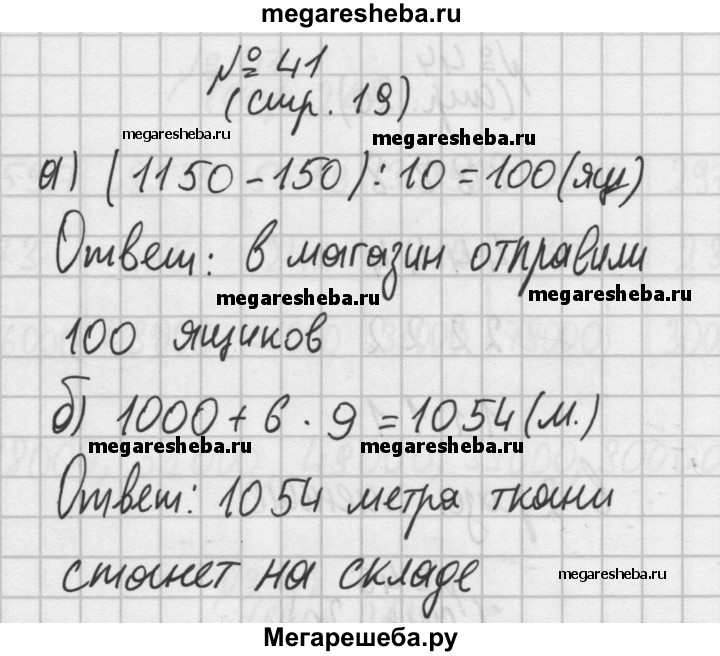 megaresheba.ru
№ 41
(стр. 19)
megaresheba.ru
megaresheba.ru
а) (1150-150):10=100(ящ)
Ответ: в магазин отправили
megaresheba.ru
megaresheba.ru
100 ящиков
б) 1000+6·9=1054(м.)
megaresheba.ru
megaresheba.ru
Ответ: 1054 метра ткани
станет на складе
megaresheba.ru
Мегарешеба.ру